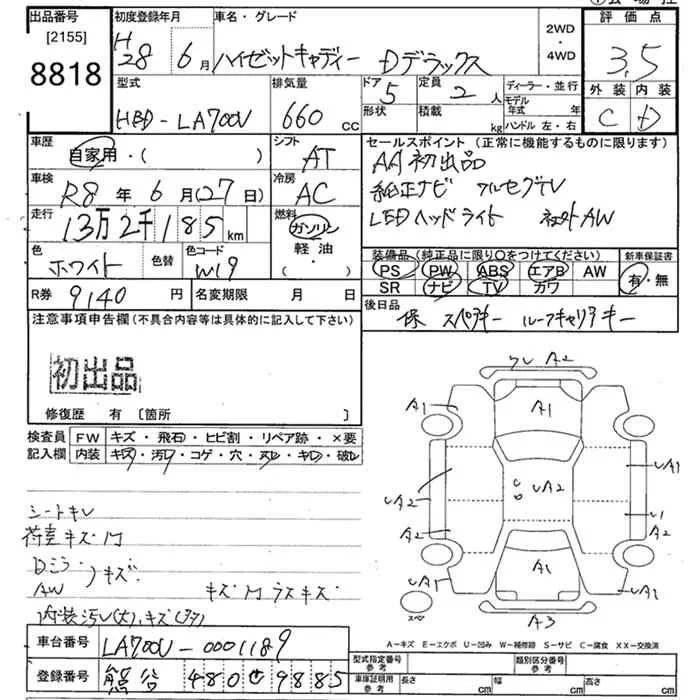 出品番号
[2155]
8818
初度登録年月
H28 年 6月
車名・グレード
ハイゼットキャディー Dデラックス
2WD
・
4WD
評価点
3.5
外装 内装
C D
型式
HBD-LA700V
排気量
660 cc
ドア
5
形状
定員
2 人
積載
kg
ディーラー・並行
モデル年式 年
ハンドル 左・右
車歴
自家用・( )
シフト
AT
セールスポイント (正常に機能するものに限ります)
AA初出品
純正ナビ フルセグTV
LEDヘッドライト 社外AW
車検
R8 年 6 月(27日)
冷房
AC
走行
13万2千185 km
燃料
ガソリン
軽・油
・( )
色
ホワイト
色替
色コード
W19
装備品 (純正品に限り○をつけてください)
PS PW ABS エアB AW
SR ナビ TV カワ
新車保証書
有・無
R券 9140 円
名変期限 月 日
後日品
保 スペアキー ルーフキャリアキー
注意事項申告欄 (不具合内容等は具体的に記入して下さい)
初出品
修復歴 有 〔箇所 〕
検査員記入欄
FW キズ・飛石・ヒビ割・リペア跡・×要
内装 キズ・汚レ・コゲ・穴・スレ・キレ・破レ
シートキレ
荷室キズ凹
Dミラー
AW
キズ
キズ凹 ラスキズ
内装汚レ(大)、キズ(多)
ワレ A2
A1
A1
UA1
UA2
UA2
U
A2
A2
UA1
A1
UA1
スペア
A3
A-キズ E-エクボ U-凹み W-補修跡 S-サビ C-腐食 XX-交換済
車台番号
LA700V-0001189
登録番号
熊谷 480 を 9885
型式指定番号
参考
類別区分番号
参考
車庫証明用
参考
長さ cm
幅 cm
高さ cm